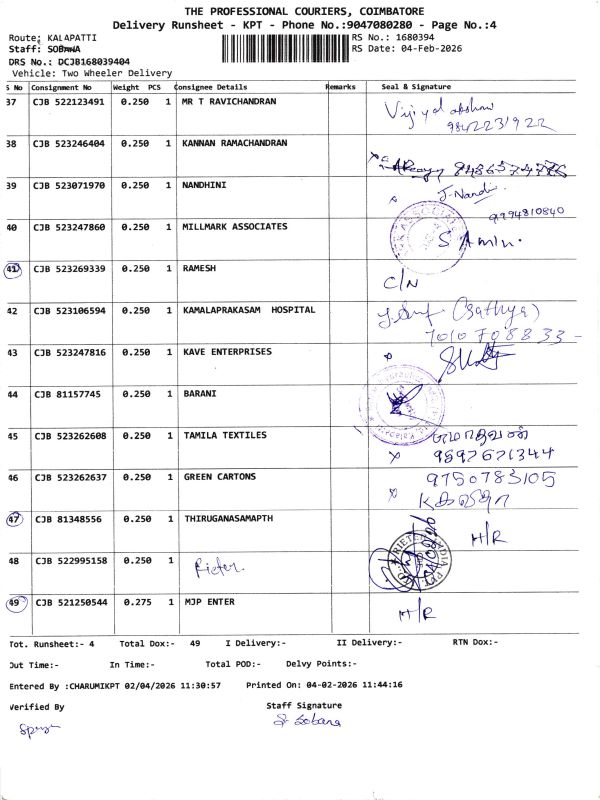 THE PROFESSIONAL COURIERS, COIMBATORE
Delivery Runsheet - KPT - Phone No.:9047080280 - Page No.:4
Route: KALAPATTI
RS No.: 1680394
Staff: SOBANA
RS Date: 04-Feb-2026
DRS No.: DCJB168039404
Vehicle: Two Wheeler Delivery
S No Consignment No Weight PCS Consignee Details Remarks Seal & Signature
37 CJB 522123491 0.250 1 MR T RAVICHANDRAN
9842231922
38 CJB 523246404 0.250 1 KANNAN RAMACHANDRAN
39 CJB 523071970 0.250 1 NANDHINI J. Nandi
9994810840
40 CJB 523247860 0.250 1 MILLMARK ASSOCIATES S Amin.
41 CJB 523269339 0.250 1 RAMESH C/N
42 CJB 523106594 0.250 1 KAMALAPRAKASAM HOSPITAL (Sathya)
7010708833-
43 CJB 523247816 0.250 1 KAVE ENTERPRISES x
44 CJB 81157745 0.250 1 BARANI
45 CJB 523262608 0.250 1 TAMILA TEXTILES
x 9597671344
46 CJB 523262637 0.250 1 GREEN CARTONS 9750783105
x
47 CJB 81348556 0.250 1 THIRUGANASAMAPTH H/R
48 CJB 522995158 0.250 1 Rieter.
49 CJB 521250544 0.275 1 MJP ENTER H/R
Tot. Runsheet:- 4 Total Dox:- 49 I Delivery:- II Delivery:- RTN Dox:-
Out Time:- In Time:- Total POD:- Delvy Points:-
Entered By :CHARUMIKPT 02/04/2026 11:30:57 Printed On: 04-02-2026 11:44:16
Verified By Staff Signature